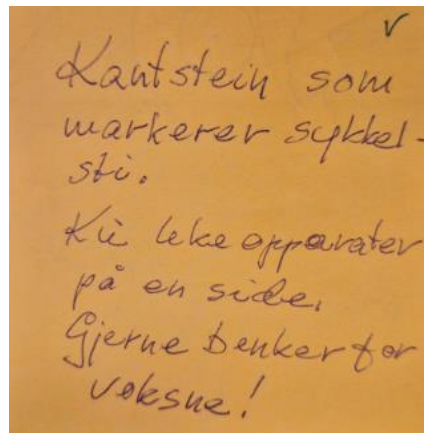 v
Kantstein som
markerer sykkel-
sti.
leke apparater
på en side.
Gjerne benker for
voksne!